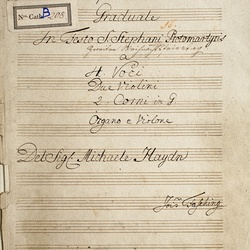 No. Cath. B 205
Graduale
In Festo S: Stephani Protomartyris
a
4. Voci
Due Violini
2. Corni in G
Organo e Violone
Del Sigl Michaele Haydn